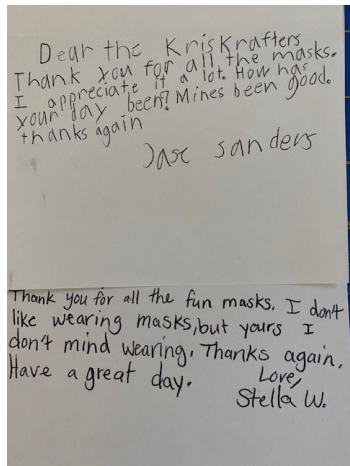 Dear the KrisKrafters
Thank you for all the masks.
I appreciate it a lot. How has
your day been? Mines been good.
thanks again
Jase sanders
Thank you for all the fun masks. I don't
like wearing masks, but yours I
don't mind wearing. Thanks again.
Have a great day.
Love,
Stella W.